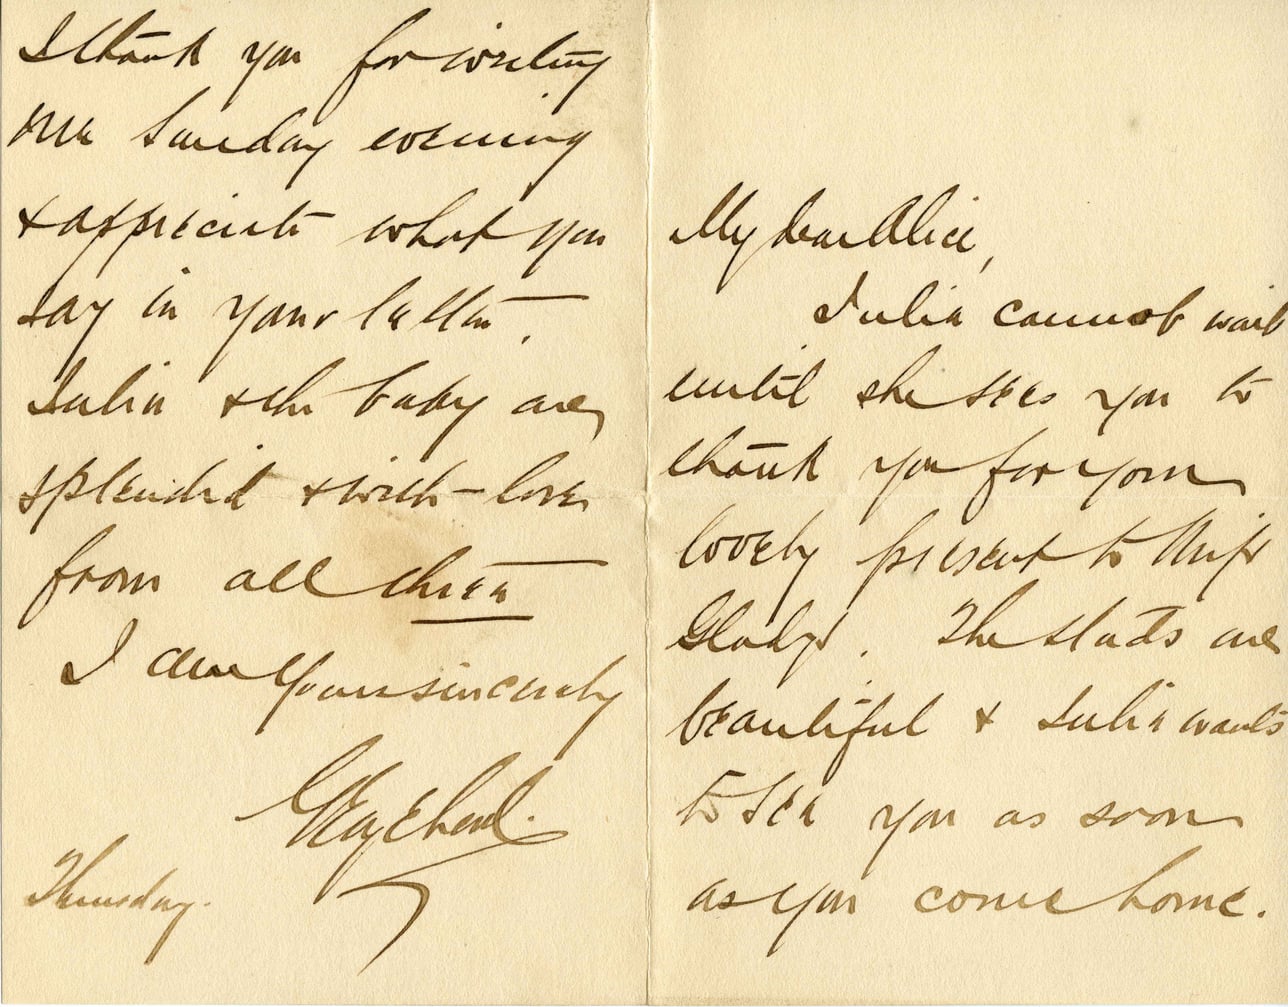 My dear Alice,
Julia cannot wait
until she sees you to
thank you for your
lovely present to Miss
Gladys. The studs are
beautiful & Julia wants
to see you as soon
as you come home.
I thank you for writing
me Sunday evening
& appreciate what you
say in your letter.
Julia & the baby are
splendid & with love
from all three
I am yours sincerely
Thursday.